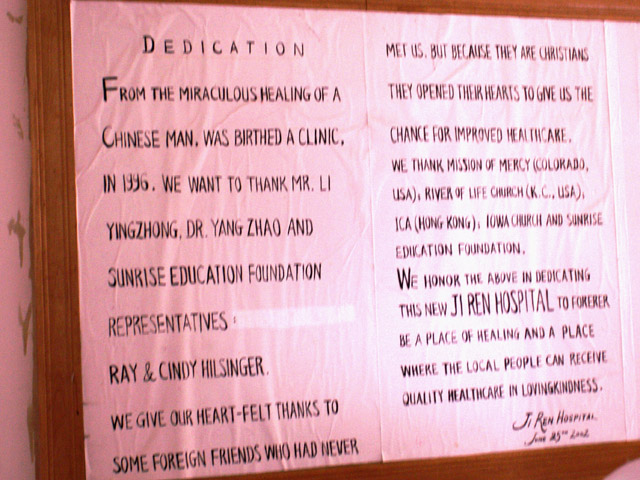 DEDICATION
FROM THE MIRACULOUS HEALING OF A
CHINESE MAN, WAS BIRTHED A CLINIC,
IN 1996. WE WANT TO THANK MR. LI
YINGZHONG, DR. YANG ZHAO AND
SUNRISE EDUCATION FOUNDATION
REPRESENTATIVES :
RAY & CINDY HILSINGER.
WE GIVE OUR HEART-FELT THANKS TO
SOME FOREIGN FRIENDS WHO HAD NEVER
MET US. BUT BECAUSE THEY ARE CHRISTIANS
THEY OPENED THEIR HEARTS TO GIVE US THE
CHANCE FOR IMPROVED HEALTHCARE.
WE THANK MISSION OF MERCY (COLORADO,
USA), RIVER OF LIFE CHURCH (K.C., USA),
ICA (HONG KONG), IOWA CHURCH AND SUNRISE
EDUCATION FOUNDATION.
WE HONOR THE ABOVE IN DEDICATING
THIS NEW JI REN HOSPITAL TO FORERER
BE A PLACE OF HEALING AND A PLACE
WHERE THE LOCAL PEOPLE CAN RECEIVE
QUALITY HEALTHCARE IN LOVINGKINDNESS.
JI REN HOSPITAL
JUNE 25TH 2002